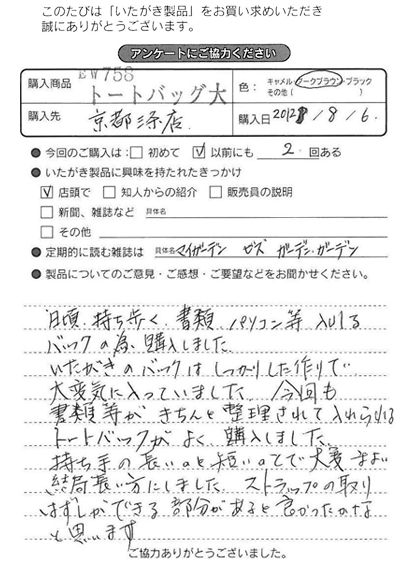 このたびは「いたがき製品」をお買い求めいただき
誠にありがとうございます。
アンケートにご協力ください
購入商品 EW758 トートバッグ大
色: キャメル・ダークブラウン・ブラック
その他( )
購入先 京都三条店
購入日 2012/8/6.
● 今回のご購入は: □ 初めて ☑ 以前にも 2 回ある
● いたがき製品に興味を持たれたきっかけ
☑ 店頭で □ 知人からの紹介 □ 販売員の説明
□ 新聞、雑誌など 具体名
□ その他
● 定期的に読む雑誌は 具体名 マイガーデン ビズ ガーデン・ガーデン
● 製品についてのご意見・ご感想・ご要望などをお聞かせください。
日頃、持ち歩く、書類、パソコン等 入れる
バックの為、購入しました。
いたがきのバックは しっかりした作りで
大変気に入っていました。今回も
書類等が きちんと整理されて入れられる
トートバックがよく、購入しました。
持ち手の長いのと短いので大変まよい
結局長い方にしました。ストラップの取り
はずしができる部分があると良かったかな
と思います
ご協力ありがとうございました。